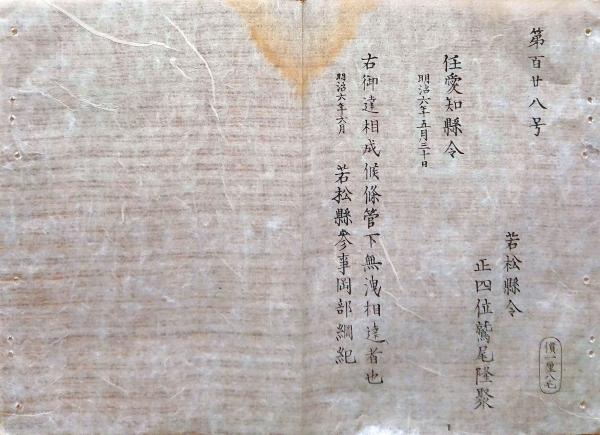 第百廿八号
若松縣令
正四位鷲尾隆聚
任愛知縣令
明治六年五月三十日
右御達相成候條管下無洩相達者也
明治六年六月
若松縣參事岡部綱紀
價一厘八毛